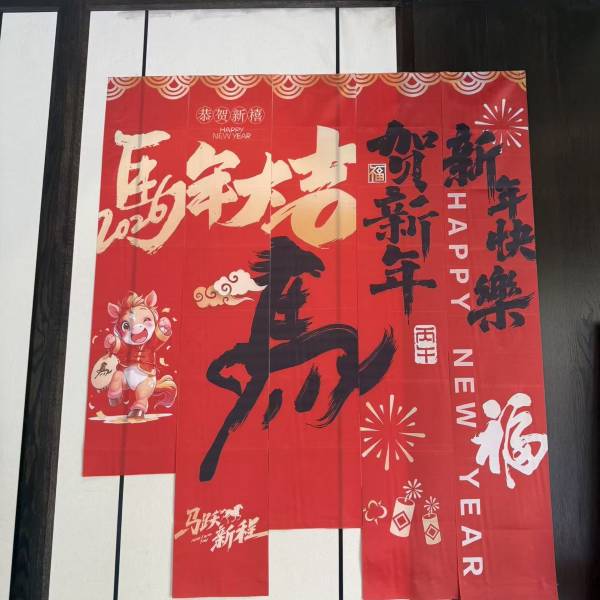 恭贺新禧
HAPPY
NEW YEAR
馬年大吉
2026
馬
马跃新程
贺新年
福
丙午
新年快樂
HAPPY NEW YEAR
福